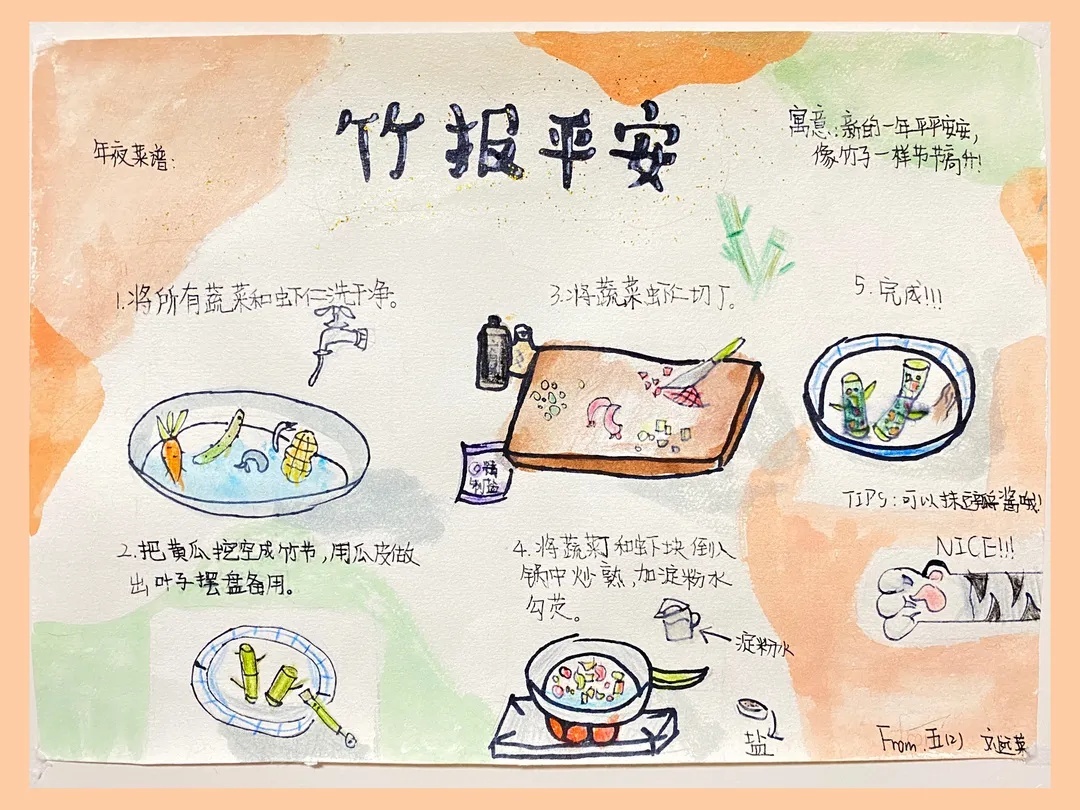 竹报平安
年夜菜谱:
寓意:新的一年平平安安,
像竹子一样节节高升!
1.将所有蔬菜和虾仁洗干净。
2.把黄瓜挖空成竹节,用瓜皮做
出叶子摆盘备用。
3.将蔬菜虾仁切丁。
精制盐
4.将蔬菜丁和虾块倒入
锅中炒熟,加淀粉水
勾芡。
淀粉水
盐
5.完成!!!
TIPS:可以抹豆瓣酱哦!
NICE!!!
From.五(2)